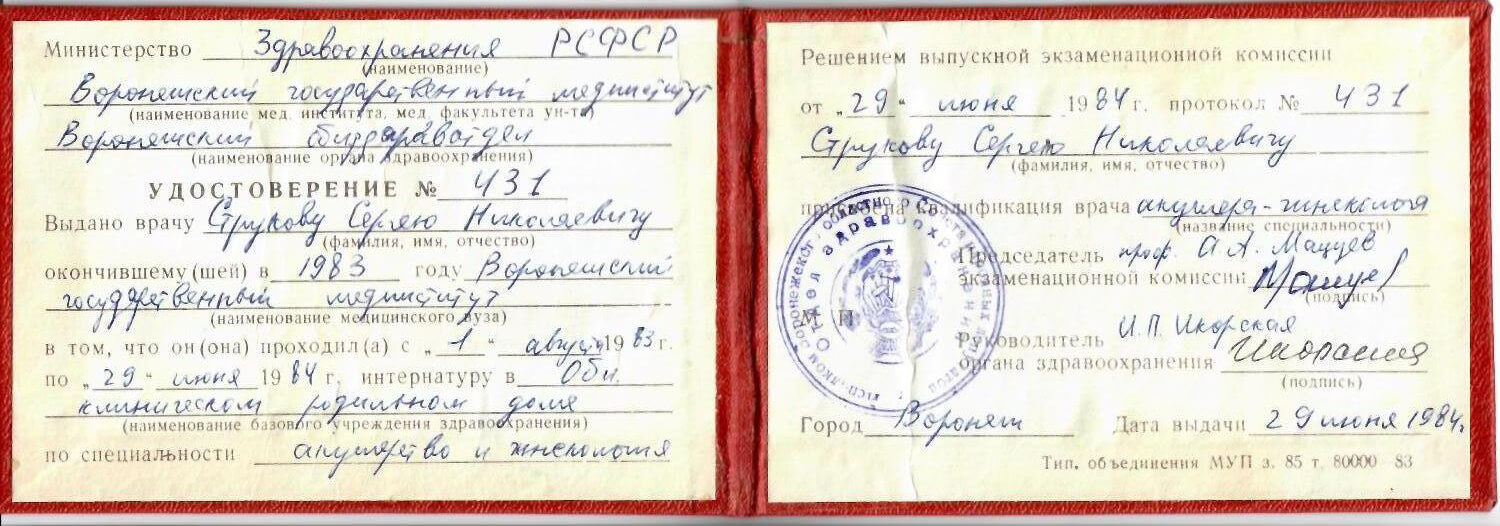 Министерство Здравоохранения РСФСР
(наименование)
Воронежский государственный мединститут
(наименование мед. института, мед. факультета ун-та)
Воронежский облздравотдел
(наименование органа здравоохранения)
УДОСТОВЕРЕНИЕ № 431
Выдано врачу Струкову Сергею Николаевичу
(фамилия, имя, отчество)
окончившему (шей) в 1983 году Воронежский
государственный мединститут
(наименование медицинского вуза)
в том, что он (она) проходил (а) с „1“ август 1983 г.
по „29“ июня 1984 г. интернатуру в Обл.
клиническом родильном доме
(наименование базового учреждения здравоохранения)
по специальности акушерство и гинекология
Решением выпускной экзаменационной комиссии
от „29“ июня 1984 г. протокол № 431
Струкову Сергею Николаевичу
(фамилия, имя, отчество)
присвоена квалификация врача акушера-гинеколога
(название специальности)
Председатель проф. А.А. Мацуев
экзаменационной комиссии
(подпись)
М П
Руководитель И.П. Икорская
органа здравоохранения Икорская
(подпись)
Город Воронеж Дата выдачи 29 июня 1984.
Тип. объединения МУП з. 85 т. 80000 83
Отдел здравоохранения